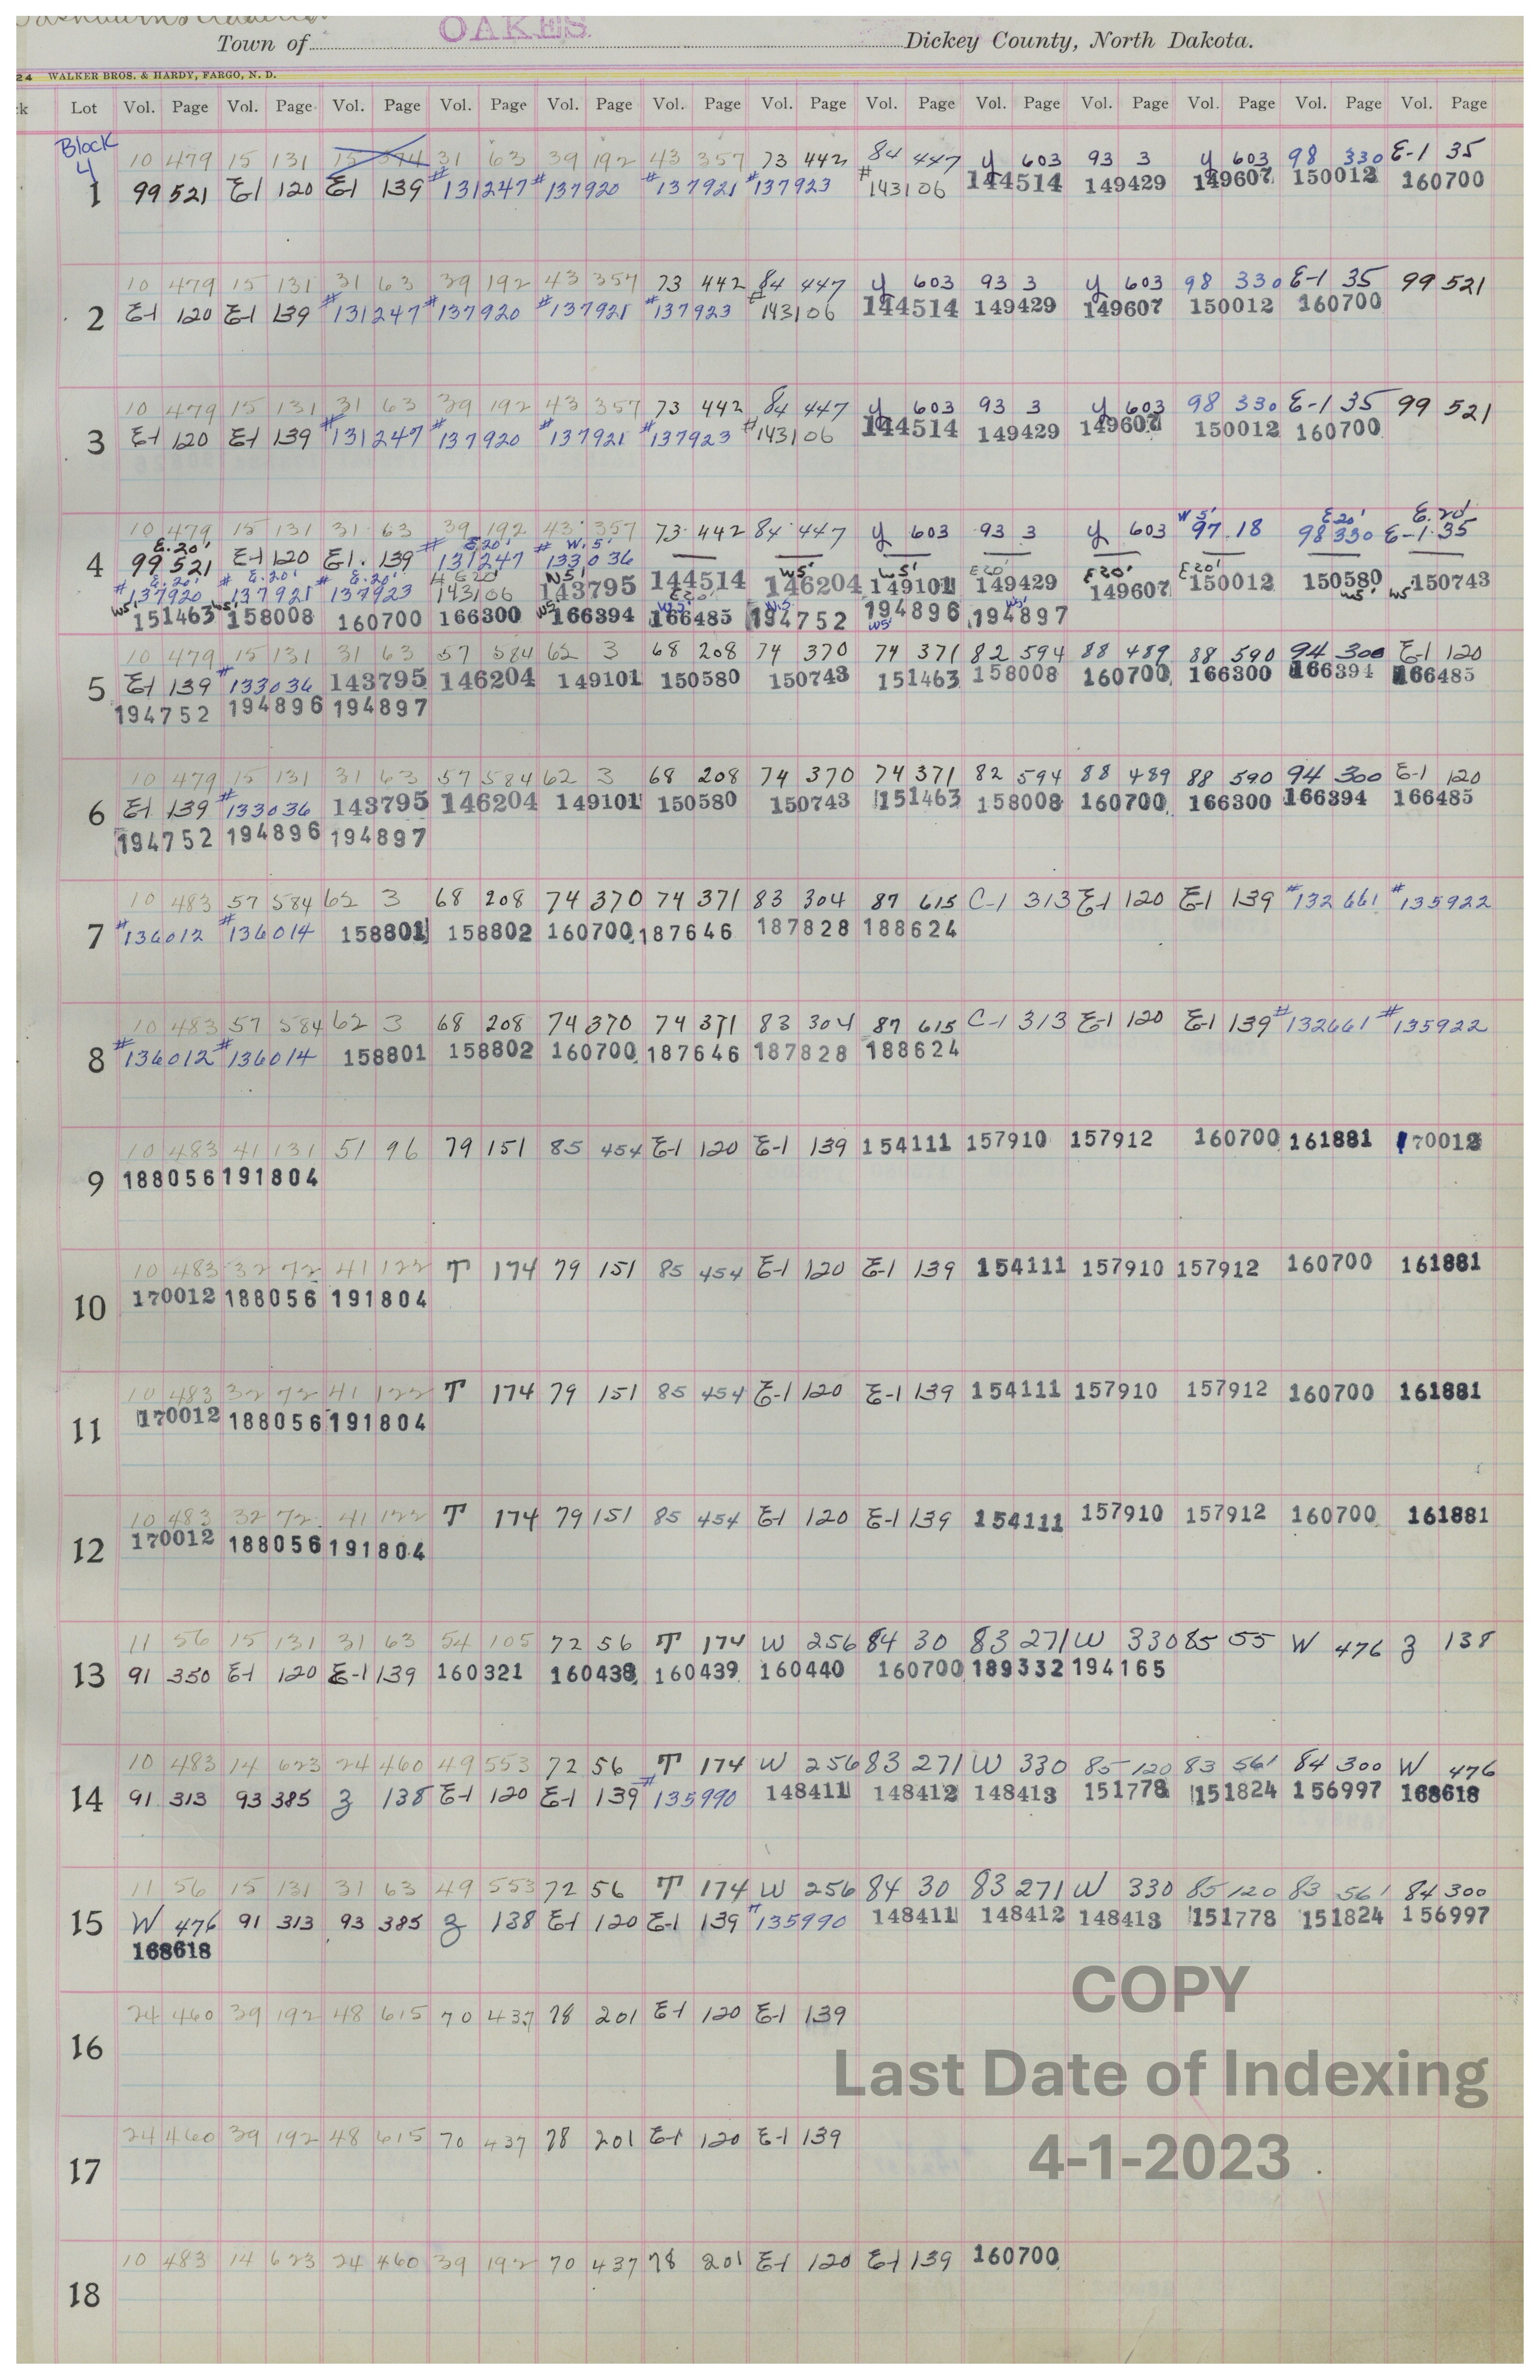 OAKES
Town of Dickey County, North Dakota.
24 WALKER BROS. & HARDY, FARGO, N. D.
Lot Vol. Page Vol. Page Vol. Page Vol. Page Vol. Page Vol. Page Vol. Page Vol. Page Vol. Page Vol. Page Vol. Page Vol. Page Vol. Page
Block 4
10 479 15 131 31 63 39 192 43 357 73 442 84 447 y 603 93 3 y 603 98 330 E-1 35
1 99 521 E-1 120 E-1 139 #131247 #137920 #137921 #137923 #143106 144514 149429 149607 150012 160700
10 479 15 131 31 63 39 192 43 357 73 442 84 447 y 603 93 3 y 603 98 330 E-1 35 99 521
2 E-1 120 E-1 139 #131247 #137920 #137921 #137923 #143106 144514 149429 149607 150012 160700
10 479 15 131 31 63 39 192 43 357 73 442 84 447 y 603 93 3 y 603 98 330 E-1 35 99 521
3 E-1 120 E-1 139 #131247 #137920 #137921 #137923 #143106 144514 149429 149607 150012 160700
10 479 15 131 31 63 39 192 43 357 73 442 84 447 y 603 93 3 y 603 W 5' 97 18 E.20' 98 330 E.20' E-1 35
4 E.20' 99 521 E-1 120 E-1 139 # E.20' 131247 # W.5' 133036
# E.20' 137920 # E.20' 137921 # E.20' 137923 # E20' 143106 W5' 143795 144514 E20' W5' 146204 W5' 149101 E20' 149429 E20' 149607 E20' 150012 150580 W5' W5' 150743
W5' 151463 W5' 158008 160700 166300 W5' 166394 W5' 166485 W5' 194752 194896 W5' W5' 194897
10 479 15 131 31 63 57 584 62 3 68 208 74 370 74 371 82 594 88 489 88 590 94 300 E-1 120
5 E-1 139 #133036 143795 146204 149101 150580 150743 151463 158008 160700 166300 166394 166485
194752 194896 194897
10 479 15 131 31 63 57 584 62 3 68 208 74 370 74 371 82 594 88 489 88 590 94 300 E-1 120
6 E-1 139 #133036 143795 146204 149101 150580 150743 151463 158008 160700 166300 166394 166485
194752 194896 194897
10 483 57 584 62 3 68 208 74 370 74 371 83 304 87 615 C-1 313 E-1 120 E-1 139 #132661 #135922
7 #136012 #136014 158801 158802 160700 187646 187828 188624
10 483 57 584 62 3 68 208 74 370 74 371 83 304 87 615 C-1 313 E-1 120 E-1 139 #132661 #135922
8 #136012 #136014 158801 158802 160700 187646 187828 188624
10 483 41 131 51 96 79 151 85 454 E-1 120 E-1 139 154111 157910 157912 160700 161881 170012
9 188056 191804
10 483 32 72 41 122 T 174 79 151 85 454 E-1 120 E-1 139 154111 157910 157912 160700 161881
10 170012 188056 191804
10 483 32 72 41 122 T 174 79 151 85 454 E-1 120 E-1 139 154111 157910 157912 160700 161881
11 170012 188056 191804
10 483 32 72 41 122 T 174 79 151 85 454 E-1 120 E-1 139 154111 157910 157912 160700 161881
12 170012 188056 191804
11 56 15 131 31 63 54 105 72 56 T 174 W 256 84 30 83 271 W 330 85 55 W 476 z 138
13 91 350 E-1 120 E-1 139 160321 160438 160439 160440 160700 189332 194165
10 483 14 623 24 460 49 553 72 56 T 174 W 256 83 271 W 330 85 120 83 561 84 300 W 476
14 91 313 93 385 z 138 E-1 120 E-1 139 #135990 148411 148412 148413 151778 151824 156997 168618
11 56 15 131 31 63 49 553 72 56 T 174 W 256 84 30 83 271 W 330 85 120 83 561 84 300
15 W 476 91 313 93 385 z 138 E-1 120 E-1 139 #135990 148411 148412 148413 151778 151824 156997
168618
24 460 39 192 48 615 70 437 78 201 E-1 120 E-1 139
16
24 460 39 192 48 615 70 437 78 201 E-1 120 E-1 139
17
10 483 14 623 24 460 39 192 70 437 78 201 E-1 120 E-1 139 160700
18
COPY
Last Date of Indexing
4-1-2023